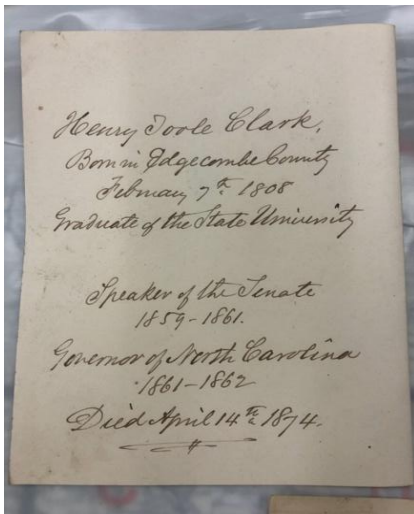 Henry Toole Clark,
Born in Edgecombe County
February 7th 1808
Graduate of the State University
Speaker of the Senate
1859-1861.
Governor of North Carolina
1861-1862
Died April 14th 1874.